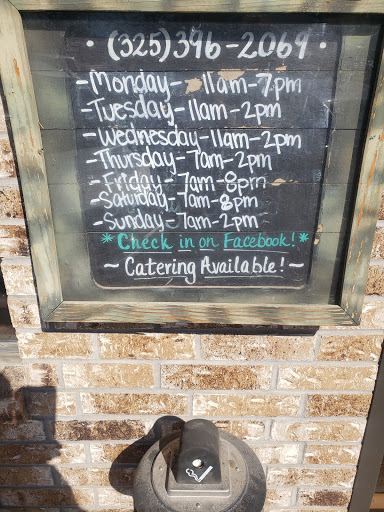 • (325) 396-2069 •
-Monday- 11am-7pm
-Tuesday-11am-2pm
-Wednesday-11am-2pm
-Thursday-7am-2pm
-Friday-7am-8pm
-Saturday-7am-8pm
-Sunday-7am-2pm
*Check in on Facebook!*
~Catering Available!~